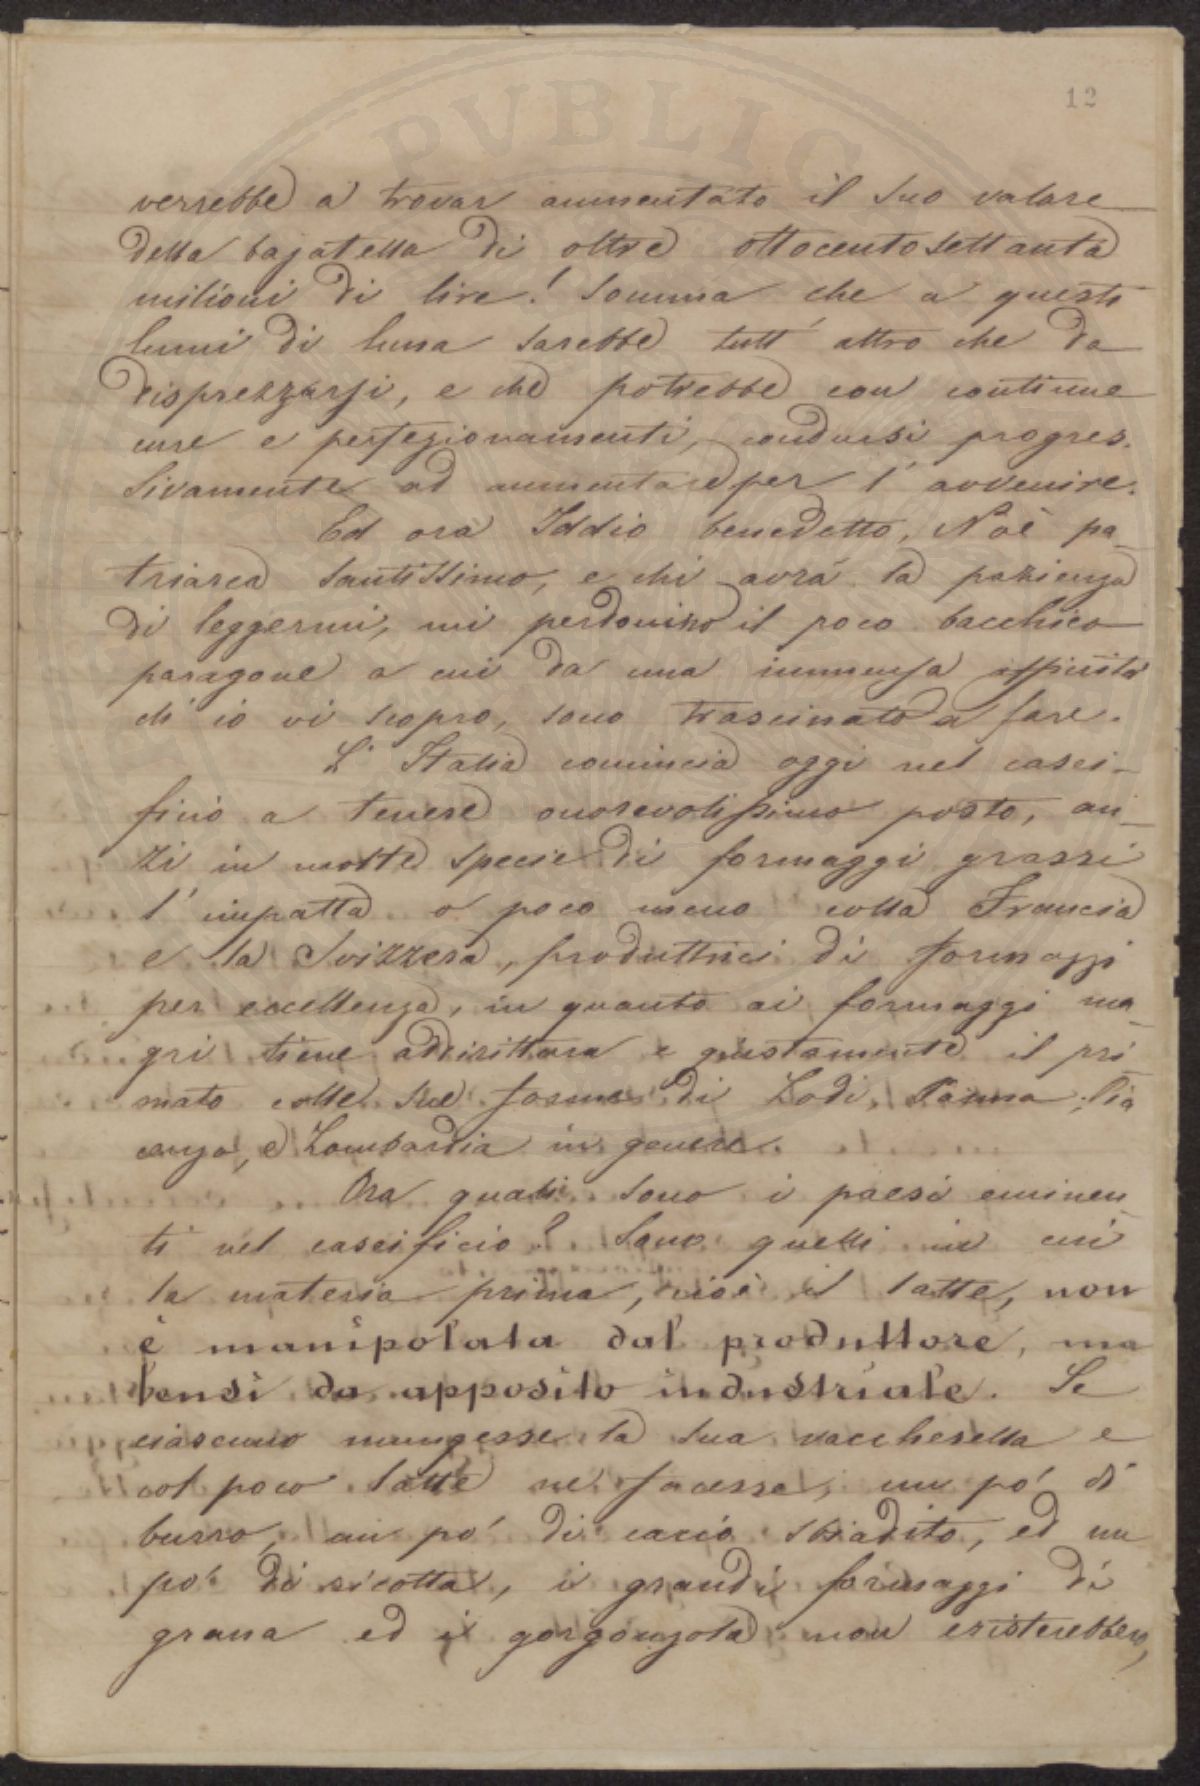 12
verrebbe a trovar aumentato il suo valore
della bajatella di oltre ottocentosettanta
milioni di lire! Somma che a questi
lumi di luna sarebbe tutt'altro che da
disprezzarsi, e che potrebbe con continue
cure e perfezionamenti, condursi progres-
sivamente ad aumentare per l'avvenire.
Ed ora Iddio benedetto, Noè pa-
triarca santissimo, e chi avrà la pazienza
di leggermi, mi perdonino il poco bacchico
paragone a cui da una immensa affinità
ch'io vi scopro, sono trascinato a fare.
L'Italia comincia oggi nel casei-
ficio a tenere onorevolissimo posto, an-
zi in molte specie di formaggi grassi
l'impatta o poco meno colla Francia
e la Svizzera, produttrici di formaggi
per eccellenza, in quanto ai formaggi ma-
gri tiene addirittura e giustamente il pri-
mato colle sue forme di Lodi, Parma, Pia
cenza, e Lombardia in genere.
Ora quali sono i paesi eminen-
ti nel caseificio? Sono quelli in cui
la materia prima, cioè il latte, non
è manipolata dal produttore, ma
bensì da apposito industriale. Se
ciascuno mungesse la sua vaccherella e
col poco latte ne facesse, un pò di
burro, un pò di cacio sbiadito, ed un
pò di ricotta, i grandi formaggi di
grana ed i gorgonzola non esisterebbero,
PVBLICA